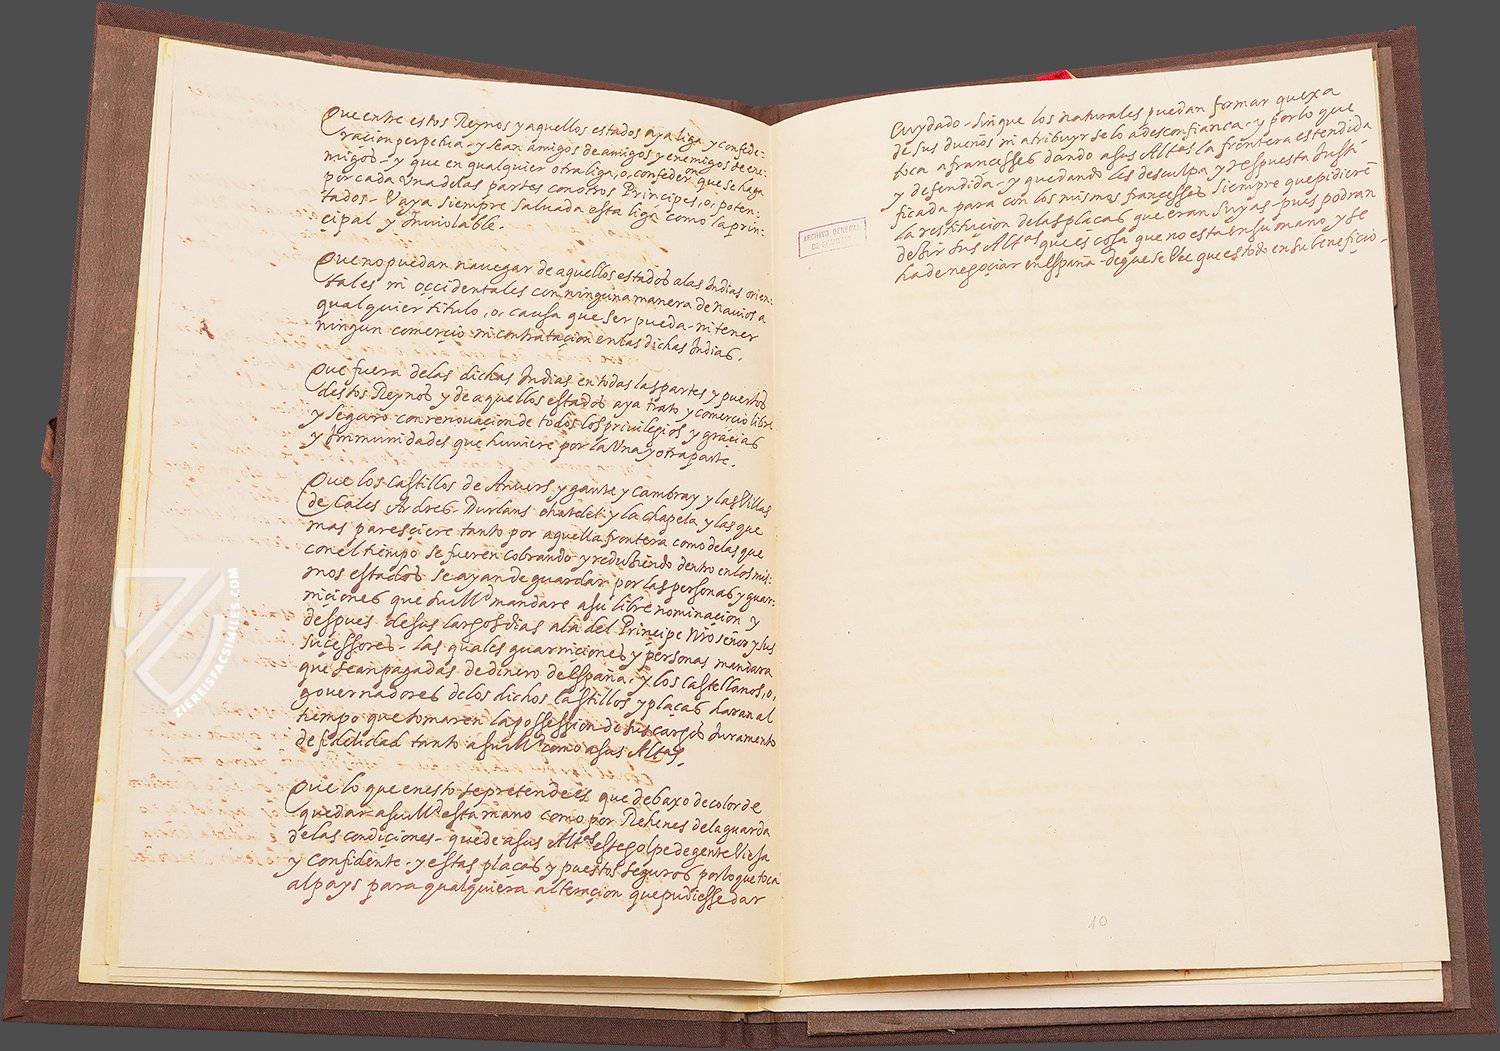 Que entre estos Reynos y aquellos estados aya liga y confede-
racion perpetua y sean amigos de amigos y enemigos de ene-
migos y que en qualquier otra liga, o, confeder. que se haga
por cada una de las partes con otros Principes, o, poten-
tados Vaya siempre salvada esta liga como la prin-
cipal y Inviolable.
Que no puedan navegar de aquellos estados a las Indias orien-
tales ni occidentales con ninguna manera de navios a
qualquier titulo, o, causa que ser pueda ni tener
ningun comercio ni contratacion en las dichas Indias.
Que fuera de las dichas Indias en todas las partes y puertos
destos Reynos y de aquellos estados aya trato y comercio libre
y seguro con renovacion de todos los privilegios y gracias
y Immunidades que huviere por la Una y otra parte.
Que los Castillos de Anvers y gante y Cambray y las Villas
de Cales Ardres Durlans chatelet y la chapela y las que
mas paresciere tanto por aquella frontera como de las que
con el tiempo se fueren cobrando y reduziendo dentro en los mis-
mos estados se ayan de guardar por las personas y guar-
niciones que su Md mandare a su libre nominacion y
despues de sus largos dias a la del Principe nro señor y sus
sucessores las quales guarniciones y personas mandara
que sean pagadas de dinero de España, y los castellanos, o,
governadores de los dichos Castillos y plaças daran al
tiempo que tomaren la possession de sus cargos Juramento
de fidelidad tanto a su Md como a sus Altas.
Que lo que en esto se pretende es que debaxo de color de
quedar a su Md esta mano como por Rehenes de la guarda
de las condiciones quede a sus Altas este golpe de gente Vieja
y confidente y estas plaças y puestos seguros por lo que toca
al pays para qualquiera alteracion que pudiesse dar
Cuydado sin que los naturales puedan formar quexa
de sus dueños ni atribuyrselo a desconfiança y por lo que
toca a francesses dando a sus Altas la frontera estendida
y defendida y quedandoles desculpa y respuesta Justi-
ficada para con los mismos francesses siempre que pidieren
la restitucion de las plaças que eran suyas pues podran
dezir sus Altas que es cosa que no esta en su mano y se
ha de negociar en España de que se Vee que es todo en su beneficio
ARCHIVO GENERAL
DE SIMANCAS
10
ZIEREISFACSIMILES.COM